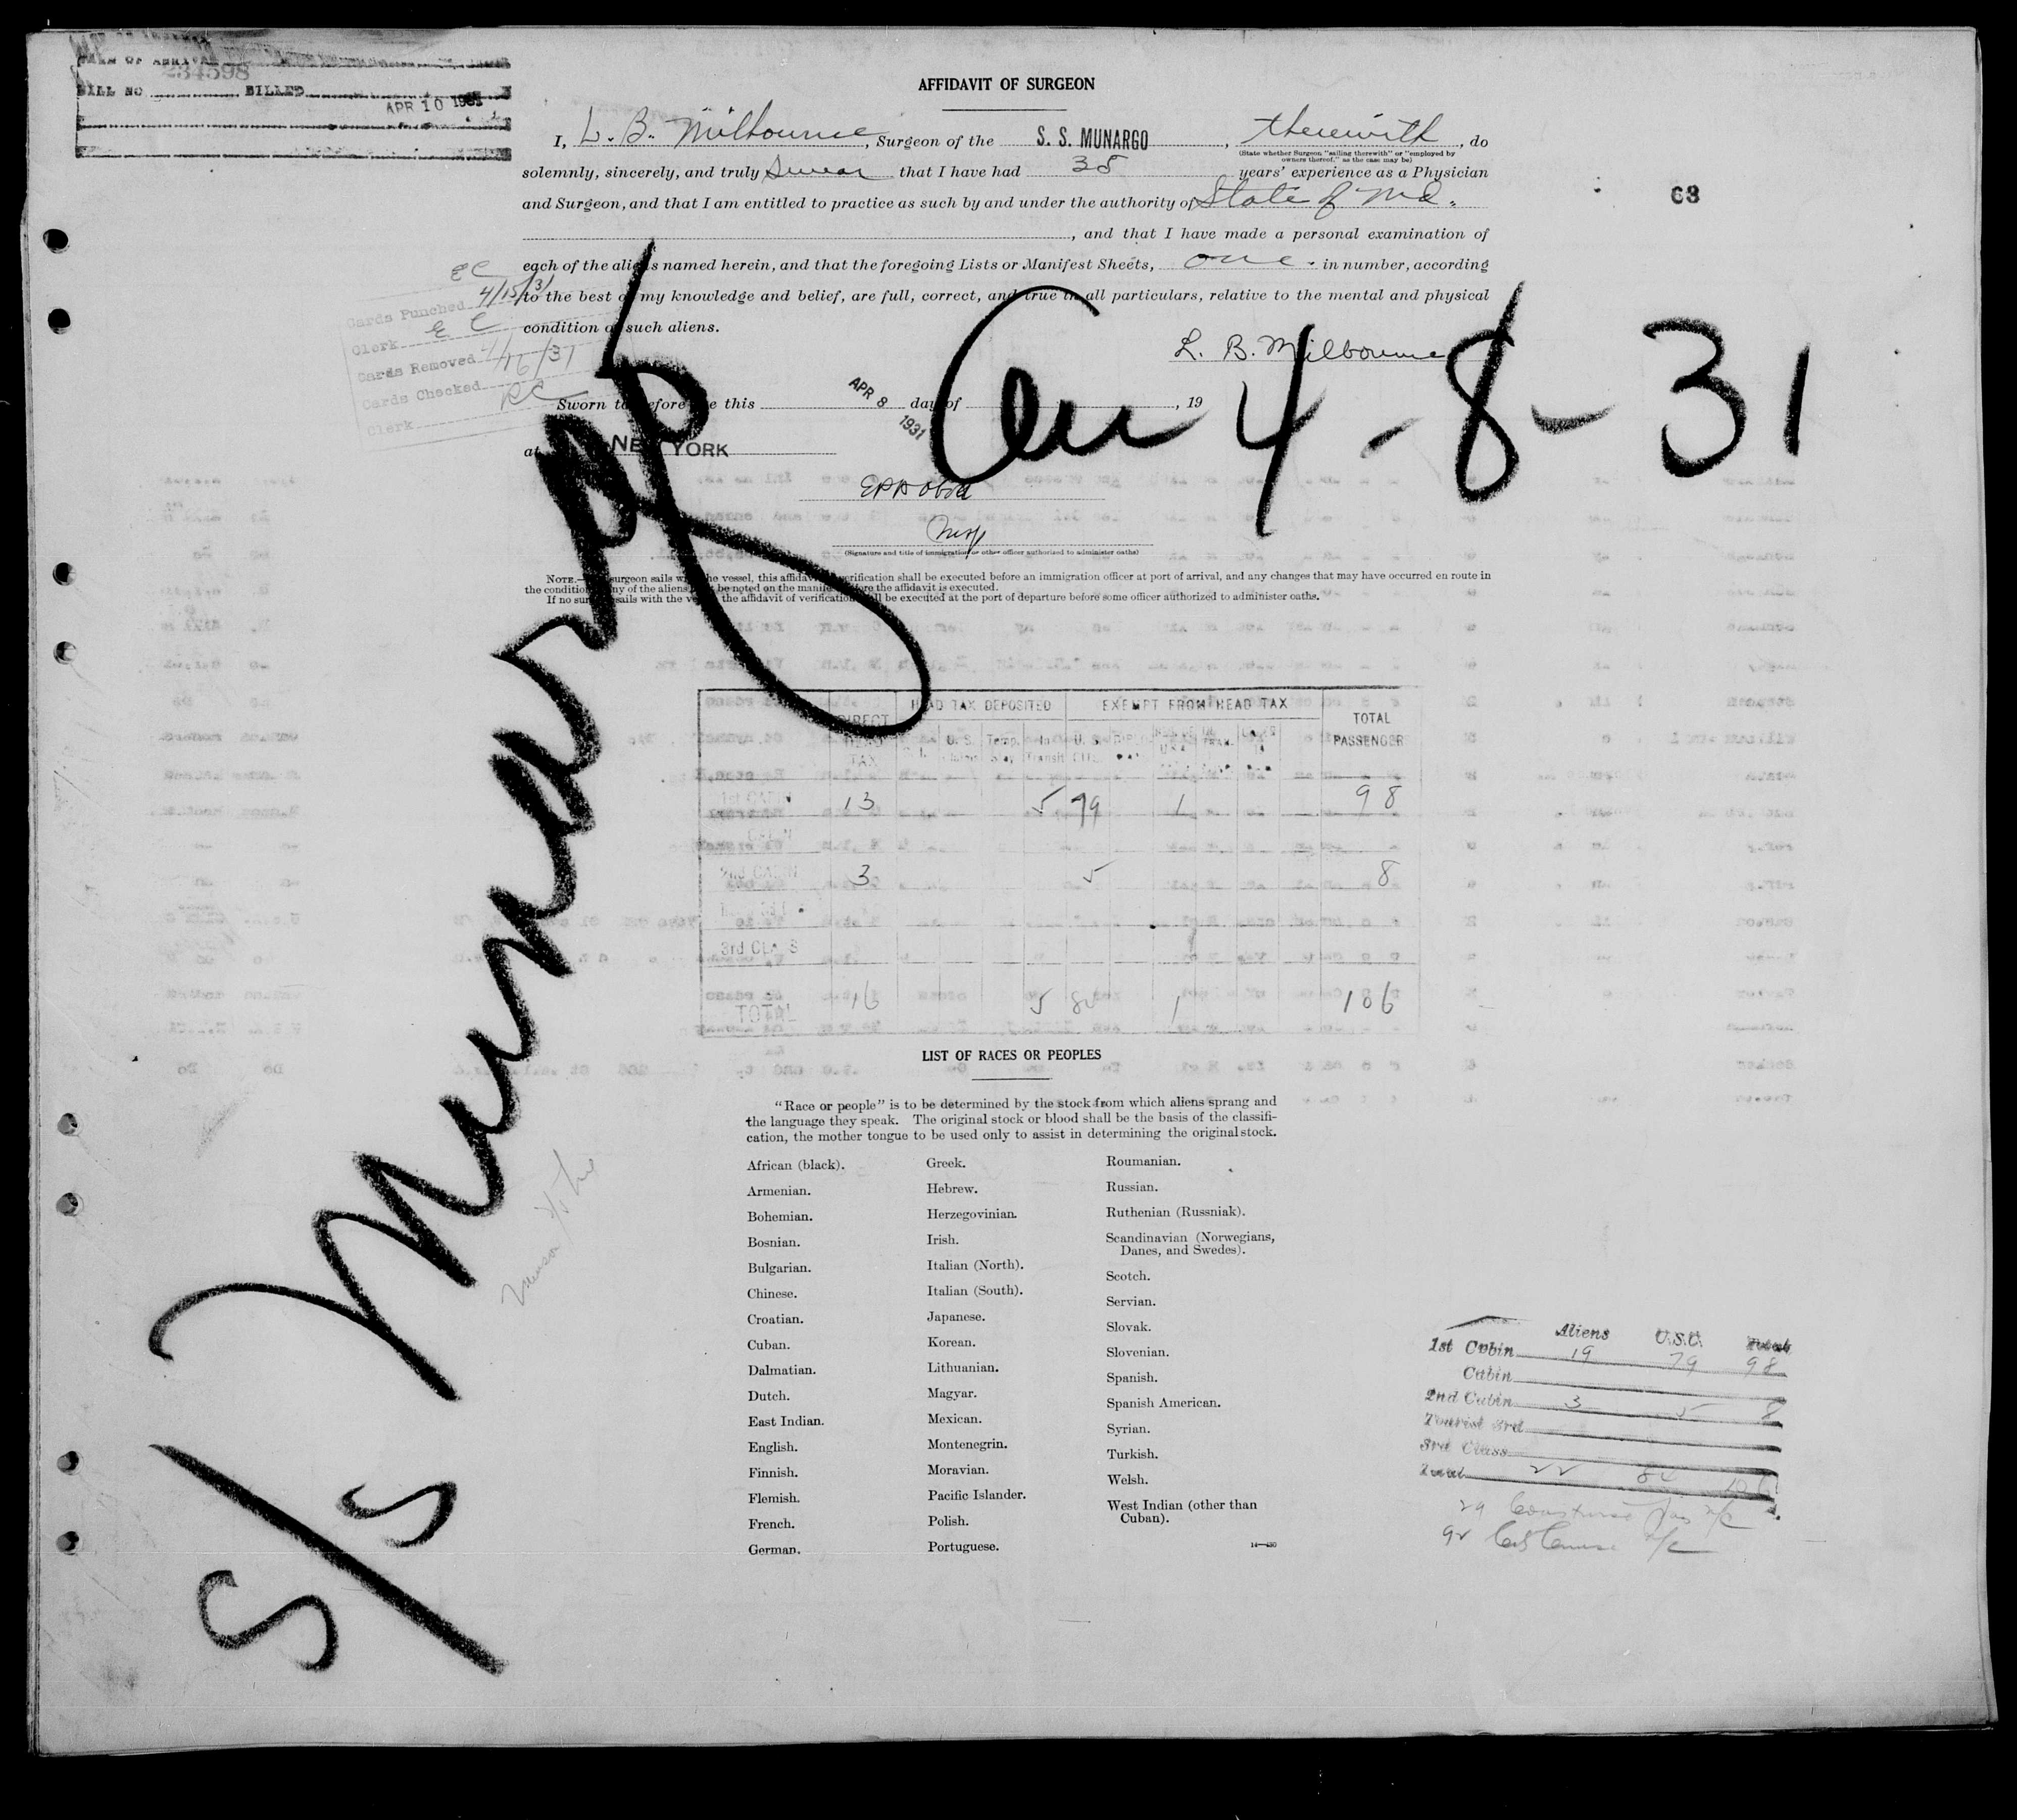 234598
BILL NO BILLED
APR 10 1931
AFFIDAVIT OF SURGEON
I, L. B. Milbourne, Surgeon of the S. S. MUNARGO, therewith, do
(State whether Surgeon "sailing therewith" or "employed by
owners thereof," as the case may be)
solemnly, sincerely, and truly swear that I have had 35 years' experience as a Physician
and Surgeon, and that I am entitled to practice as such by and under the authority of State of Md.
, and that I have made a personal examination of
each of the aliens named herein, and that the foregoing Lists or Manifest Sheets, one. in number, according
to the best of my knowledge and belief, are full, correct, and true in all particulars, relative to the mental and physical
condition of such aliens.
63
L. B. Milbourne
EC
Cards Punched 4/15/31
Clerk E C
Cards Removed /16/31
Cards Checked
Clerk RC
Sworn to before me this APR 8 1931 day of , 19
at NEW YORK
4-8-31
(Signature and title of immigration or other officer authorized to administer oaths)
NOTE.— surgeon sails with the vessel, this affidavit verification shall be executed before an immigration officer at port of arrival, and any changes that may have occurred en route in
the condition any of the aliens must be noted on the manifest before the affidavit is executed.
If no surgeon sails with the vessel the affidavit of verification shall be executed at the port of departure before some officer authorized to administer oaths.
S/S Munargo
DIRECT HEAD TAX HEAD TAX DEPOSITED EXEMPT FROM HEAD TAX TOTAL PASSENGER
U. S. Temp. Stay In Transit U. S. CITZ.
1st CABIN 13 5 79 1 98
CABIN
2nd CABIN 3 5 8
3rd CLASS
TOTAL 16 5 84 1 106
LIST OF RACES OR PEOPLES
"Race or people" is to be determined by the stock from which aliens sprang and
the language they speak. The original stock or blood shall be the basis of the classifi-
cation, the mother tongue to be used only to assist in determining the original stock.
African (black).
Armenian.
Bohemian.
Bosnian.
Bulgarian.
Chinese.
Croatian.
Cuban.
Dalmatian.
Dutch.
East Indian.
English.
Finnish.
Flemish.
French.
German.
Greek.
Hebrew.
Herzegovinian.
Irish.
Italian (North).
Italian (South).
Japanese.
Korean.
Lithuanian.
Magyar.
Mexican.
Montenegrin.
Moravian.
Pacific Islander.
Polish.
Portuguese.
Roumanian.
Russian.
Ruthenian (Russniak).
Scandinavian (Norwegians,
Danes, and Swedes).
Scotch.
Servian.
Slovak.
Slovenian.
Spanish.
Spanish American.
Syrian.
Turkish.
Welsh.
West Indian (other than
Cuban).
Aliens U.S.C. Total
1st Cabin 19 79 98
Cabin
2nd Cabin 3 5 8
Tourist 3rd
3rd Class
Total 22 84 106